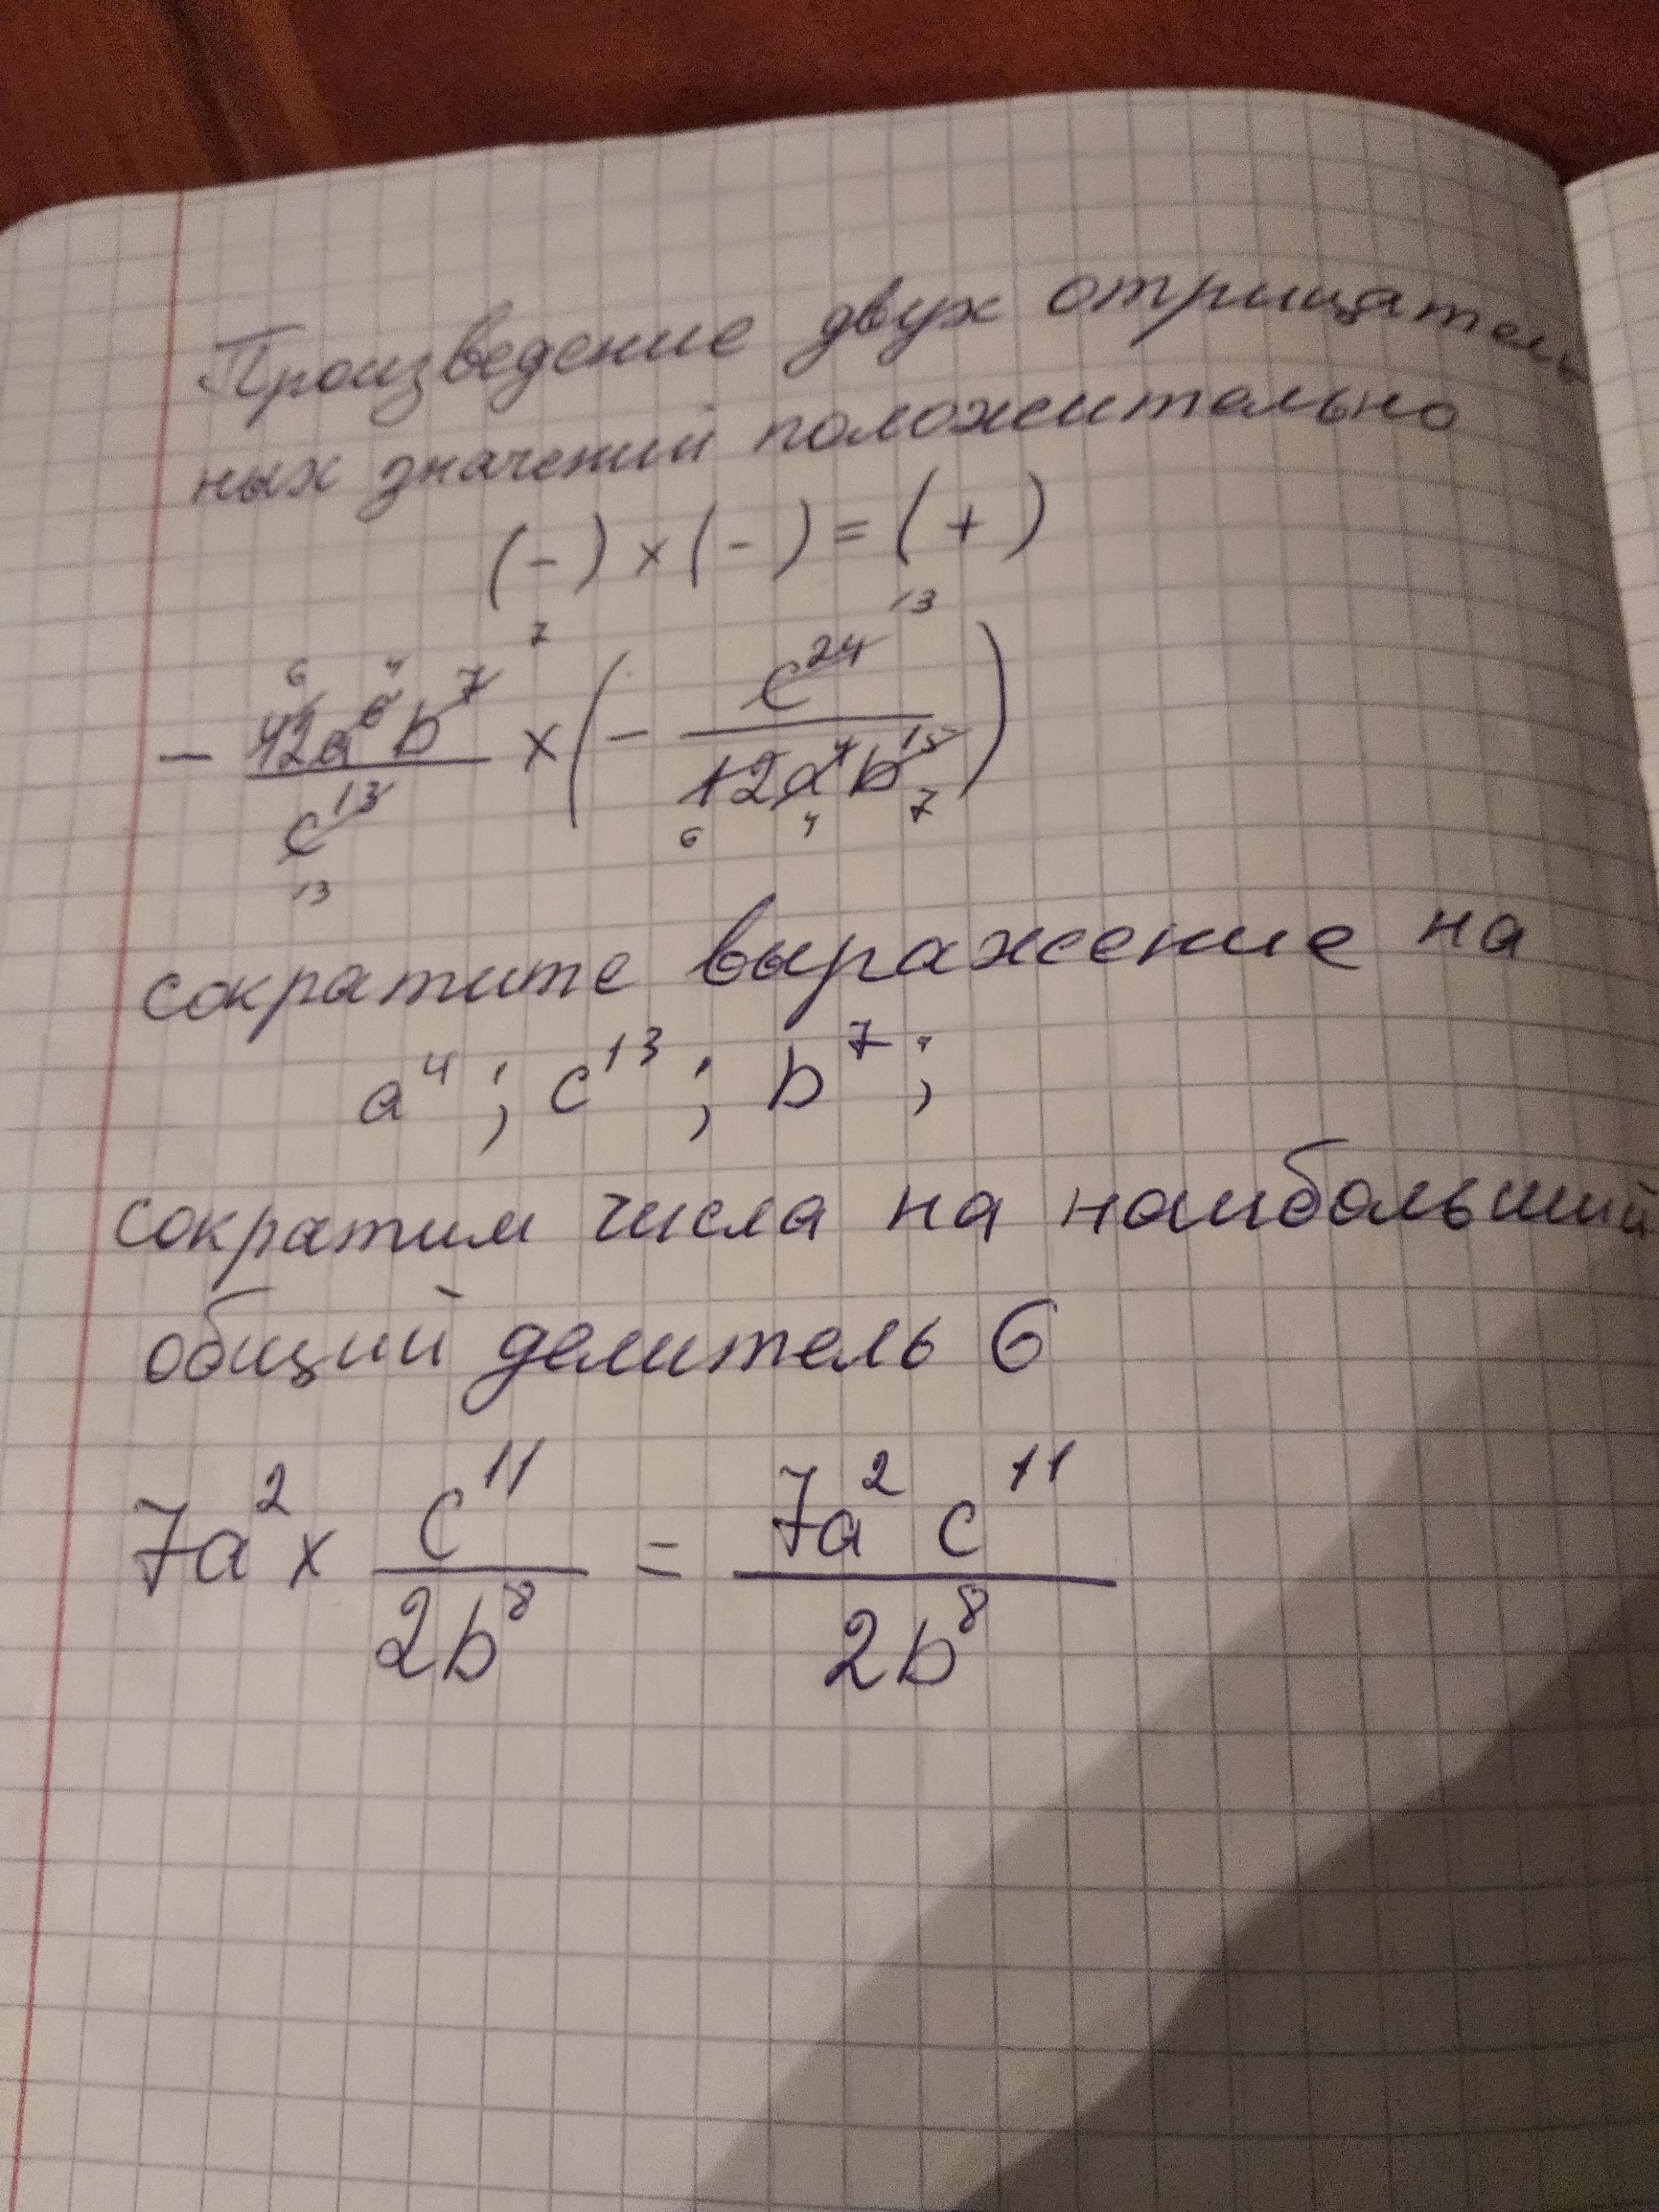 Произведение двух отрицатель
ных значений положительно
(-) × (-) = (+)
6 4 7 13
- 42a⁶b⁷/c¹³ × (- c²⁴/12a⁴b¹⁵)
13 6 4 7
сократите выражение на
a⁴; c¹³; b⁷;
сократим числа на наибольший
общий делитель 6
7a² × c¹¹/2b⁸ = 7a² c¹¹/2b⁸